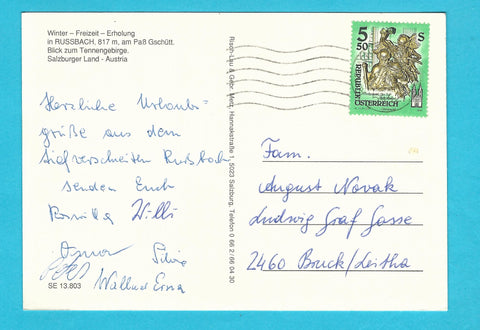 Winter – Freizeit – Erholung
in RUSSBACH, 817 m, am Paß Gschütt.
Blick zum Tennengebirge.
Salzburger Land - Austria
Herzliche Urlaubs-
grüße aus dem
tiefverschneiten Rußbach
senden Euch
Willi
Silvia
Wallner Erna
SE 13.803
Risch-Lau & Gebr. Metz, Harnakstraße 1, 5023 Salzburg, Telefon 0 66 2 / 66 04 30
5 50 S
REPUBLIK
ÖSTERREICH
Fam.
August Novak
Ludwig Graf Gasse
2460 Bruck/Leitha